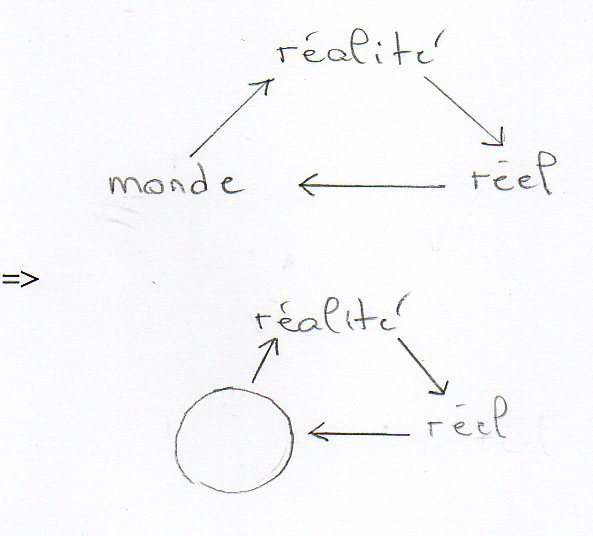 réalité
monde réel
=>
réalité
réel